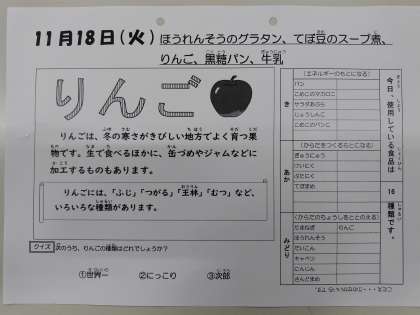 11月18日(火)
ほうれんそうのグラタン、てぼ豆のスープ煮、
りんご、黒糖パン、牛乳
りんご
りんごは、冬の寒さがきびしい地方でよく育つ果
物です。生で食べるほかに、缶づめやジャムなどに
加工するものもあります。
りんごには、「ふじ」「つがる」「王林」「むつ」など、
いろいろな種類があります。
クイズ 次のうち、りんごの種類はどれでしょうか？
①世界一 ②にっこり ③次郎
今日、使用している食品は
16
種類です。
き
(エネルギーのもとになる)
パン
こめこのマカロニ
サラダあぶら
じょうしんこ
こめこのパンこ
あか
(からだをつくるもとになる)
ぎゅうにゅう
とりにく
てぼまめ
みどり
(からだのちょうしをととのえる)
たまねぎ りんご
ほうれんそう
だいこん
キャベツ
にんじん
さんどまめ